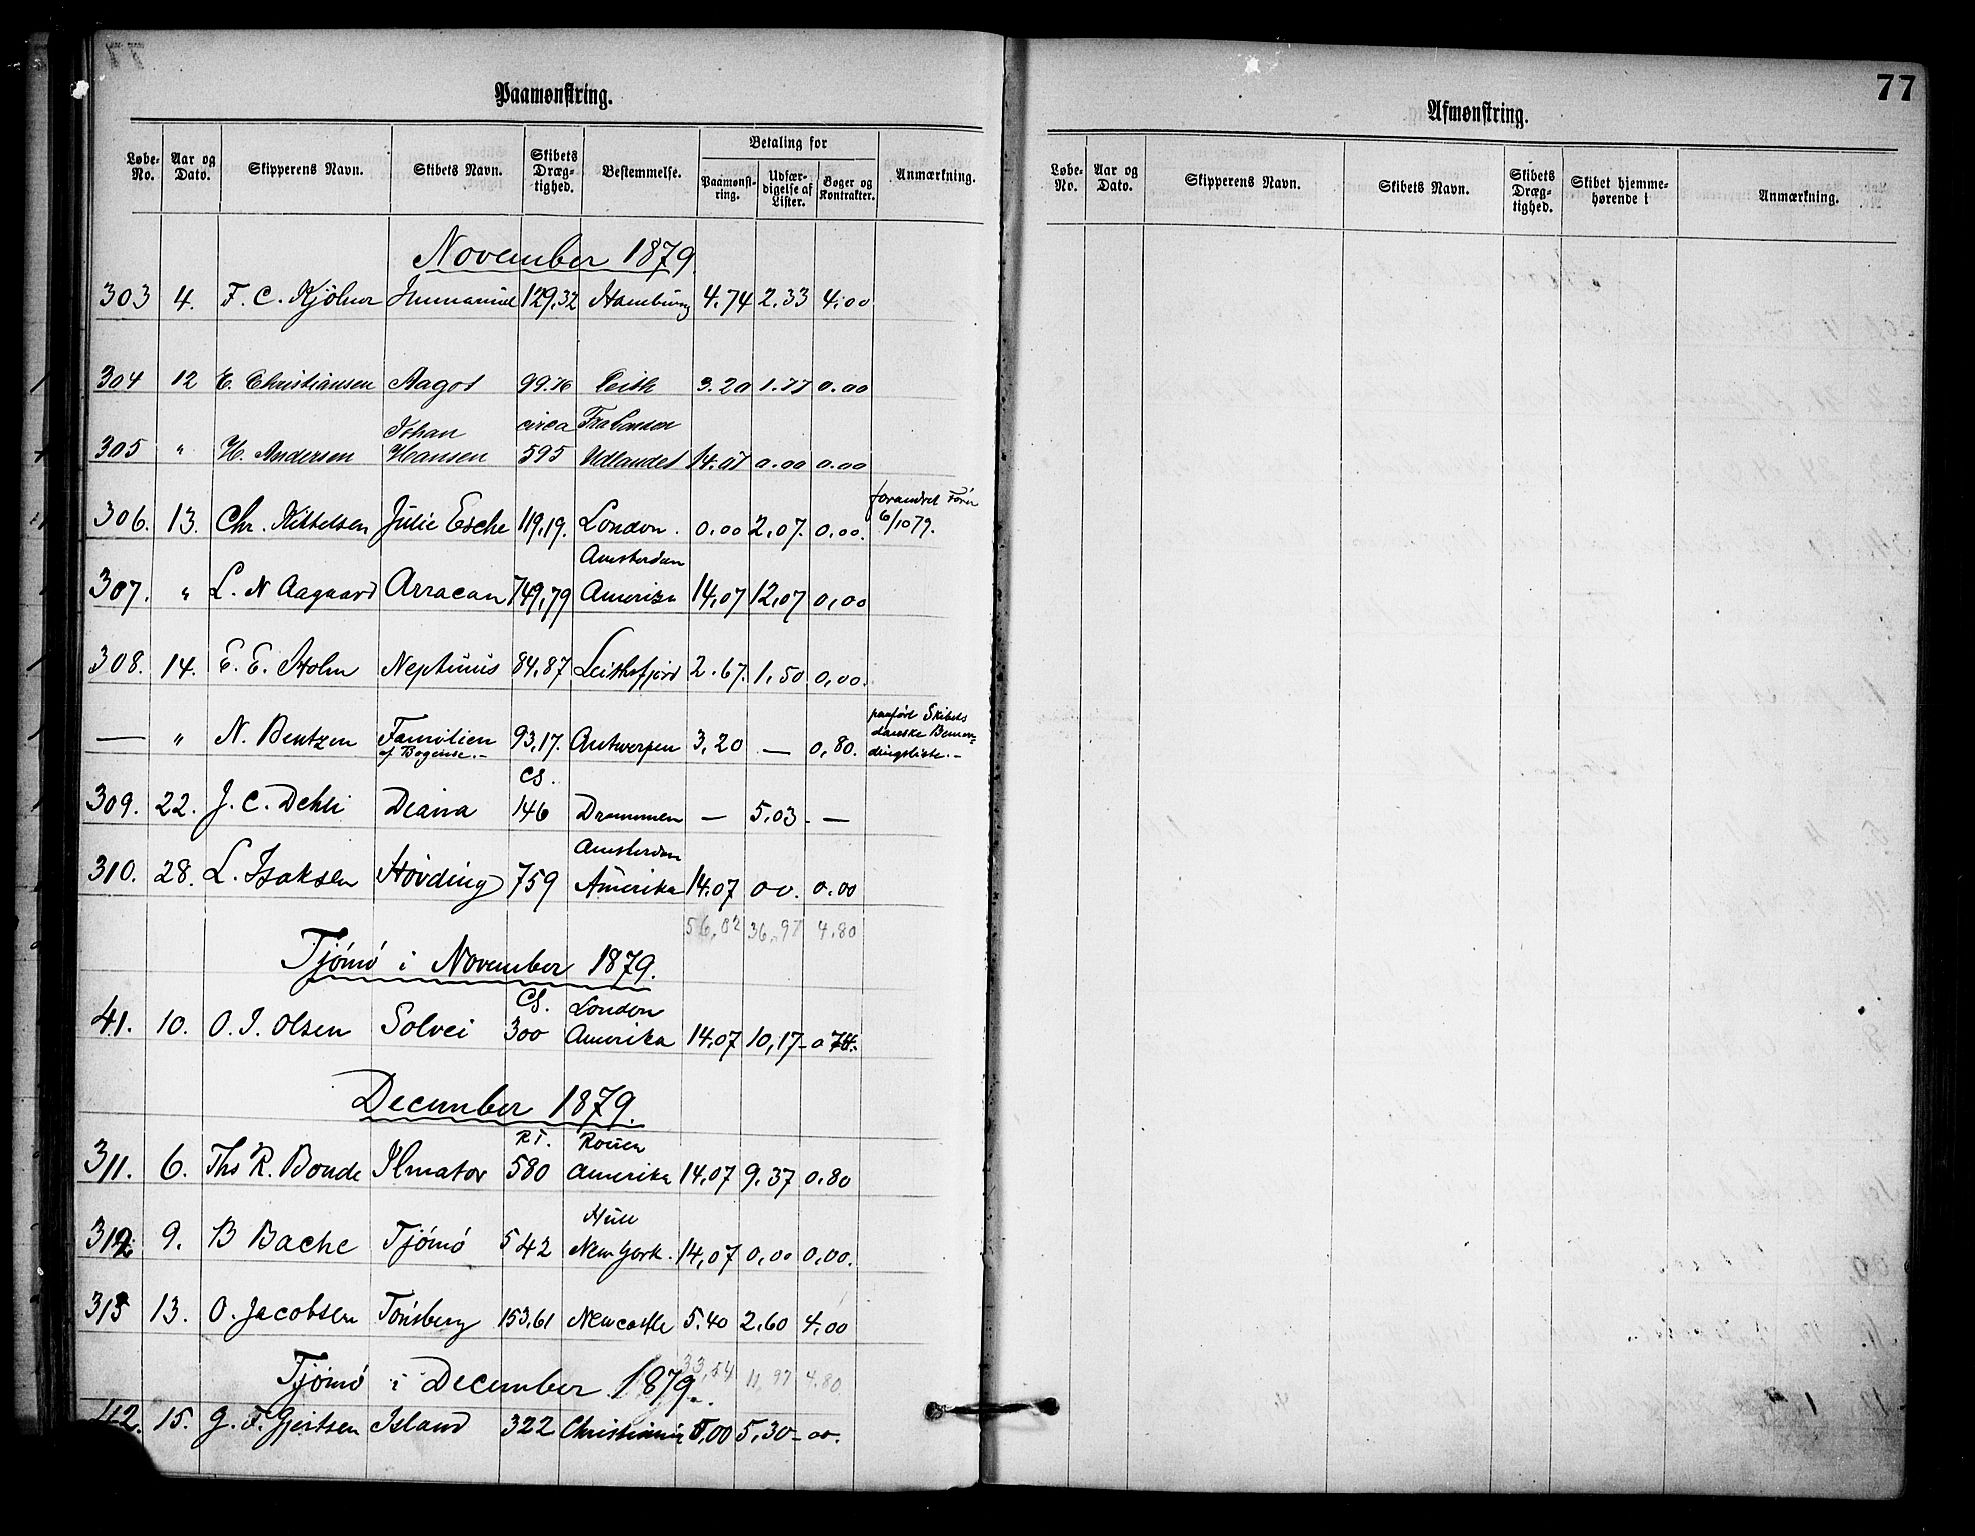 77
Paamønstring.
Løbe-No. Aar og Dato. Skipperens Navn. Skibets Navn. Skibets Dræg-tighed. Bestemmelse. Betaling for Paamønst-ring. Udfær-digelse af Lister. Bøger og Kontrakter. Anmærkning.
November 1879.
303 4. F. C. Kjölner Immanuel 129,32 Hamburg 4.74 2.33 4.00
304 12 E. Christiansen Aagot 99.76 Leith 3.20 1.77 0.00
Johan circa Fra London
305 " H. Andersen Hansen 595 Udlandet 14.07 0.00 0.00
forandret Fører
306. 13. Chr. Kittelsen Julie Esche 119,19. London. 0.00 2,07. 0,00. 6/10 79.
Amsterdam
307. " L. N Aagaard Arracan 749,79 Amerika 14,07 12,07 0,00
308. 14. E. E. Holm Neptunus 84,87 Leithsfjord 2.67. 1,50 0,00.
paaført Skibets
— " N. Bentzen Familien 93,17. Antwerpen 3,20 — 0,80. danske Beman-
af Bogense.- dingsliste.-
Cs.
309. 22. J. C. Dehli Diana 146 Drammen — 5,03. —
Amsterdam
310. 28. L. Isaksen Høvding 759 Amerika 14.07 00. 0.00
56,02 36,97 4.80
Tjömö i November 1879.
Cs. London
41. 10. O. J. Olsen Solvei 300 Amerika 14,07 10,17- 0 74.
December 1879.
R T. Rouen
311. 6. Ths R. Bonde Ilmator 580 Amerika 14,07 9.37 0.80
Hull
312. 9. B Bache Tjömö 542 New York. 14,07 0,00 0,00.
313 13. O. Jacobsen Tönsberg 153,61 Newcastle 5.40 2,60 4,00
33,54 11,97 4.80.
Tjömö i December 1879.
42. 15. G. F. Gjertsen Island 322 Christiania 5,00 5,30- 00.
77
Afmønstring.
Løbe-No. Aar og Dato. Skipperens Navn. Skibets Navn. Skibets Dræg-tighed. Skibet hjemme-hørende i Anmærkning.